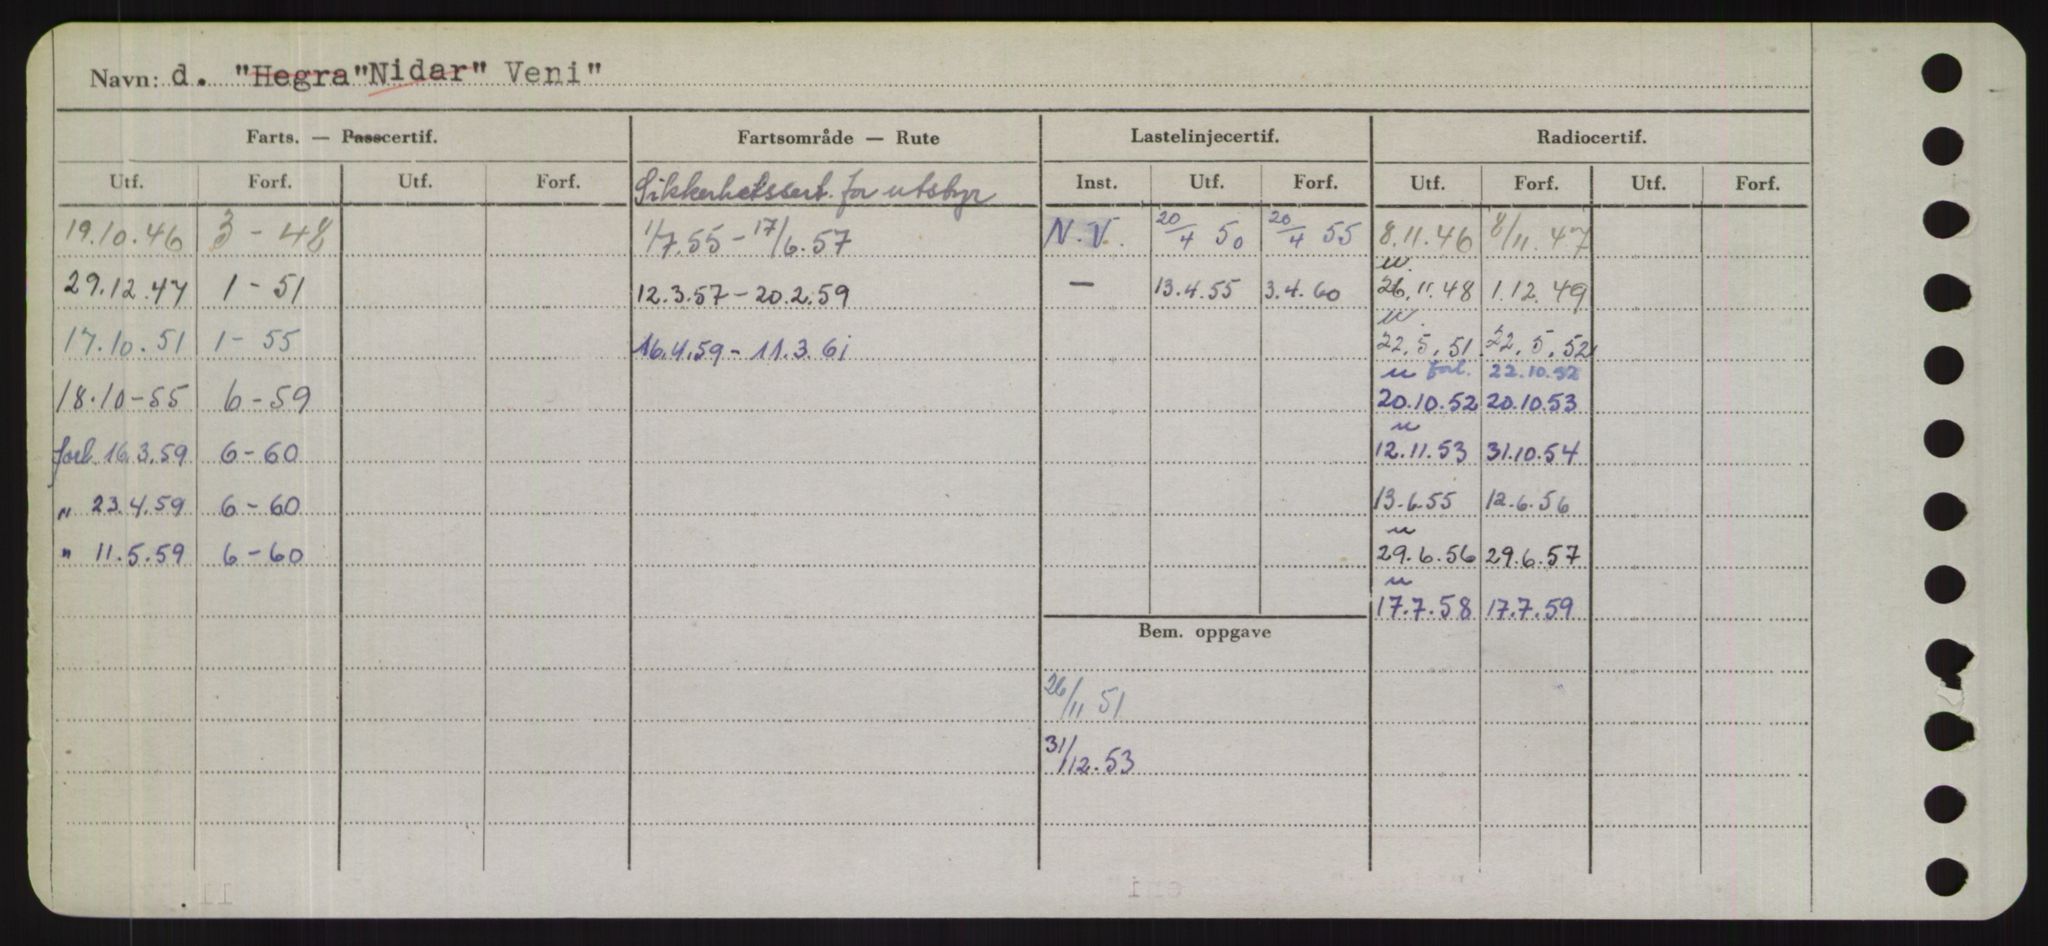 Navn: d. "Hegra" Nidar" Veni"
Farts. — Passcertif. Fartsområde — Rute Lastelinjecertif. Radiocertif.
Utf. Forf. Utf. Forf. Sikkerhetssert. for utstyr Inst. Utf. Forf. Utf. Forf. Utf. Forf.
19.10.46 3 - 48 1/7.55 - 17/6.57 N.V. 20/4 50 20/4 55 8.11.46 8/11.47
29.12.47 1 - 51 12.3.57 - 20.2.59 — 13.4.55 3.4.60 26.11.48 1.12.49
17.10.51 1 - 55 16.4.59 - 11.3.61 22.5.51 22.5.52
forl. 22.10.52
18.10-55 6 - 59 20.10.52 20.10.53
forl. 16.3.59 6 - 60 12.11.53 31.10.54
" 23.4.59 6 - 60 13.6.55 12.6.56
" 11.5.59 6 - 60 29.6.56 29.6.57
17.7.58 17.7.59
Bem. oppgave
26/11 51
31/12.53